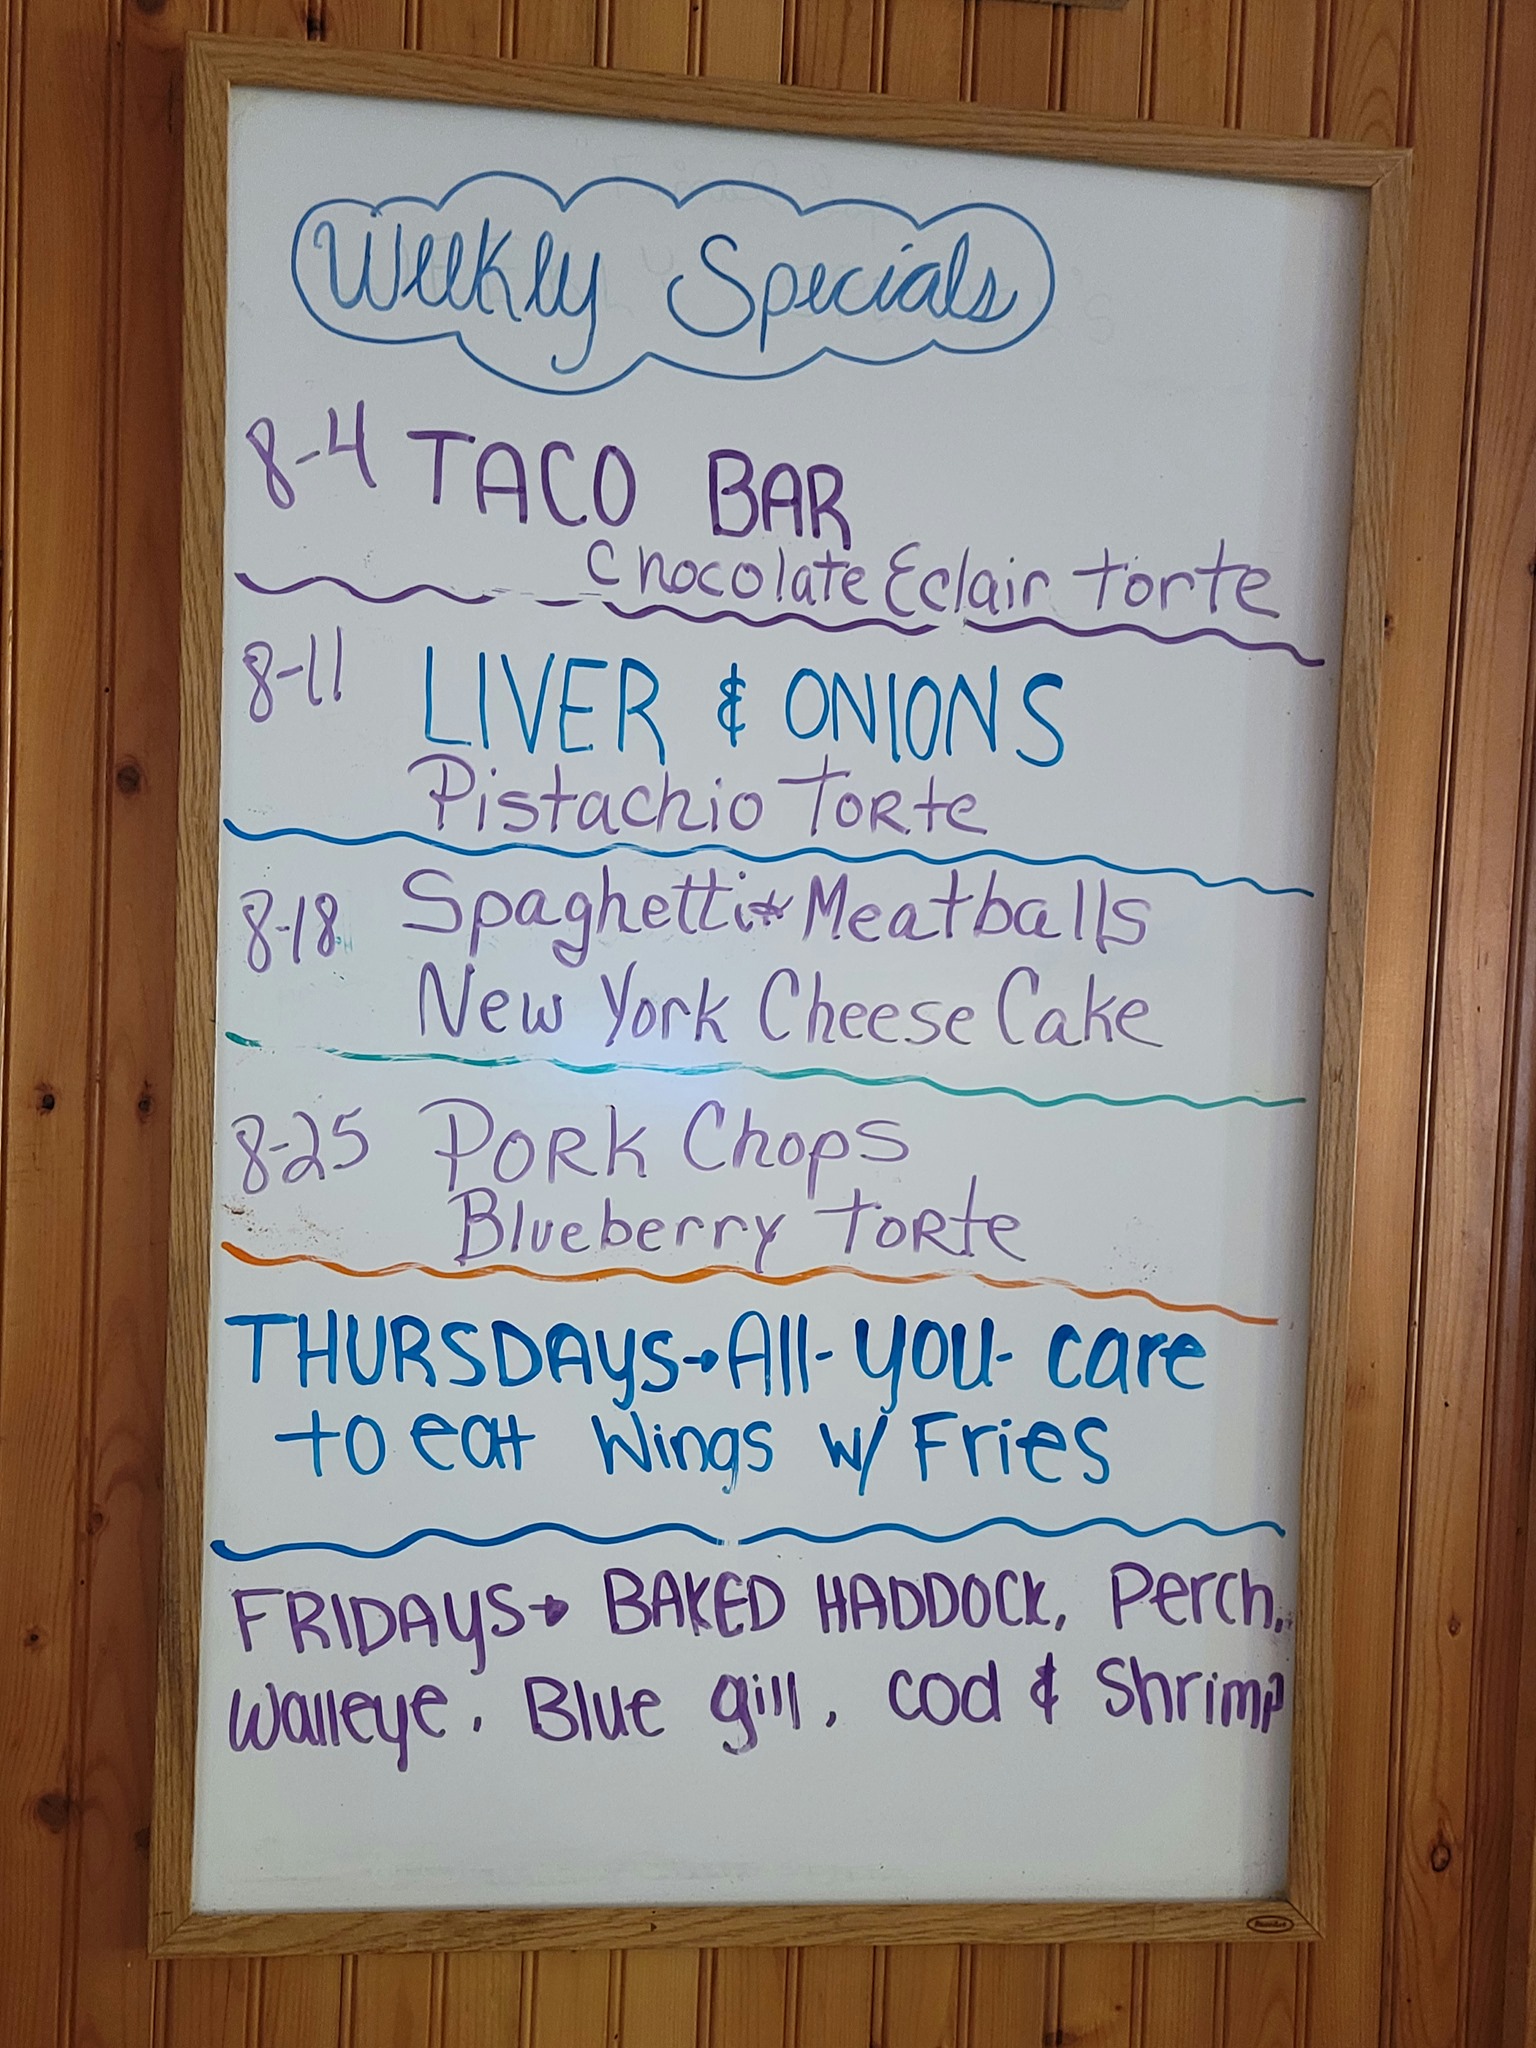 Weekly Specials
8-4 TACO BAR
Chocolate Eclair Torte
8-11 LIVER & ONIONS
Pistachio Torte
8-18 Spaghetti & Meatballs
New York Cheese Cake
8-25 Pork Chops
Blueberry Torte
THURSDAYS → All-you-care
to eat Wings w/ Fries
FRIDAYS → BAKED HADDOCK, Perch,
Walleye, Blue gill, Cod & Shrimp